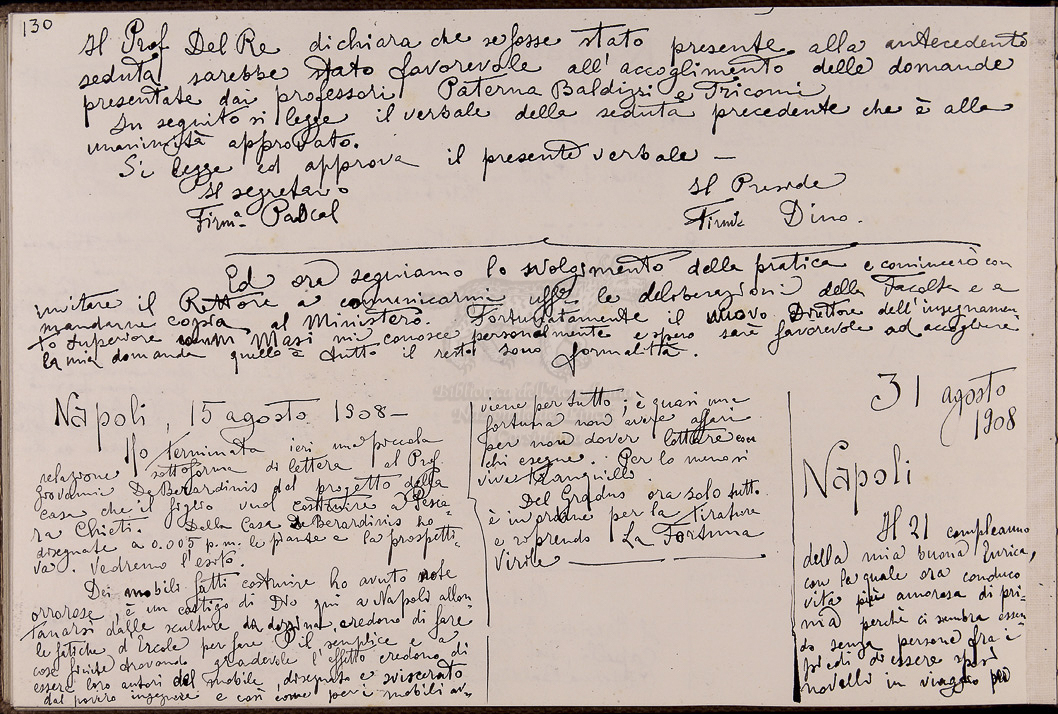 130
Il Prof Del Re dichiara che se fosse stato presente alla antecedente
seduta sarebbe stato favorevole all'accoglimento delle domande
presentate dai professori Paterna Baldizzi e Tricomi
In seguito si legge il verbale della seduta precedente che è alla
unanimità approvato.
Si legge ed approva il presente verbale —
Il segretario
Firmª Pascal
Il Preside
Firmª Dino.
Ed ora seguiamo lo svolgimento della pratica e comincerò con
invitare il Rettore a comunicarmi uffe le deliberazioni della Facoltà e a
mandarne copia al Ministero. Fortunatamente il nuovo Direttore dell'insegnamen
to Superiore Masi mi conosce personalmente e spero sarà favorevole ad accogliere
la mia domanda quello è tutto il resto sono formalità.
Napoli, 15 agosto 1908—
Ho terminata ieri una piccola
relazione sottoforma di lettera al Prof
Giovanni De Berardinis del progetto della
casa che il figlio vuol costruire a Pesca-
ra Chieti. Della Casa De Berardinis ho
disegnate a 0.005 p.m. le piante e la prospetti-
va. Vedremo l'esito.
Dei mobili fatti costruire ho avuto note
orrorose, è un castigo di Dio qui a Napoli allon
tanarsi dalle sculture da dozzina credono di fare
le fatiche d'Ercole per fare il semplice e a
cose finite trovando gradevole l'effetto credono di
essere loro autori del mobile disegnato e sviscerato
dal povero ingegnere e così come per i mobili av-
viene per tutto; è quasi una
fortuna non avere affari
per non dover lottare con
chi esegue. Per lo meno si
vive tranquilli.
Del Gradus ora solo tutto
è in ordine per la tiratura
e riprendo La Fortuna
Virile
31 agosto
1908
Napoli
Il 21 compleanno
della mia buona Enrica,
con la quale ora conduco
vita più amorosa di pri-
ma perchè ci sembra essen
do senza persone fra i
piedi di essere sposi
novelli in viaggio per